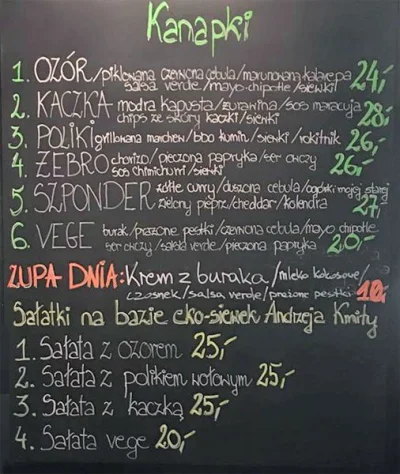 Kanapki
1. OZÓR/piklowana czerwona cebula/marynowana kalarepa
salsa verde/mayo chipotle/siewki 24,-
2. KACZKA modra kapusta/żurawina/sos maracuja
chips ze skóry kaczki/siewki 28,-
3. POLIKI grillowana marchew/bbq kumin/siewki/rokitnik 26,-
4. ŻEBRO chorizo/pieczona papryka/ser owczy
sos chimichurri/siewki 26,-
5. SZPONDER żółte curry/duszona cebula/ogórki mojej starej
zielony pieprz/cheddar/kolendra 27,-
6. VEGE burak/prażone pestki/czerwona cebula/mayo chipotle
ser owczy/salsa verde/pieczona papryka 20,-
ZUPA DNIA: Krem z buraka/mleko kokosowe/
czosnek/salsa verde/prażone pestki 10,-
Sałatki na bazie eko-siewek Andrzeja Kmity
1. Sałata z ozorem 25,-
2. Sałata z polikiem wołowym 25,-
3. Sałata z kaczką 25,-
4. Sałata vege 20,-